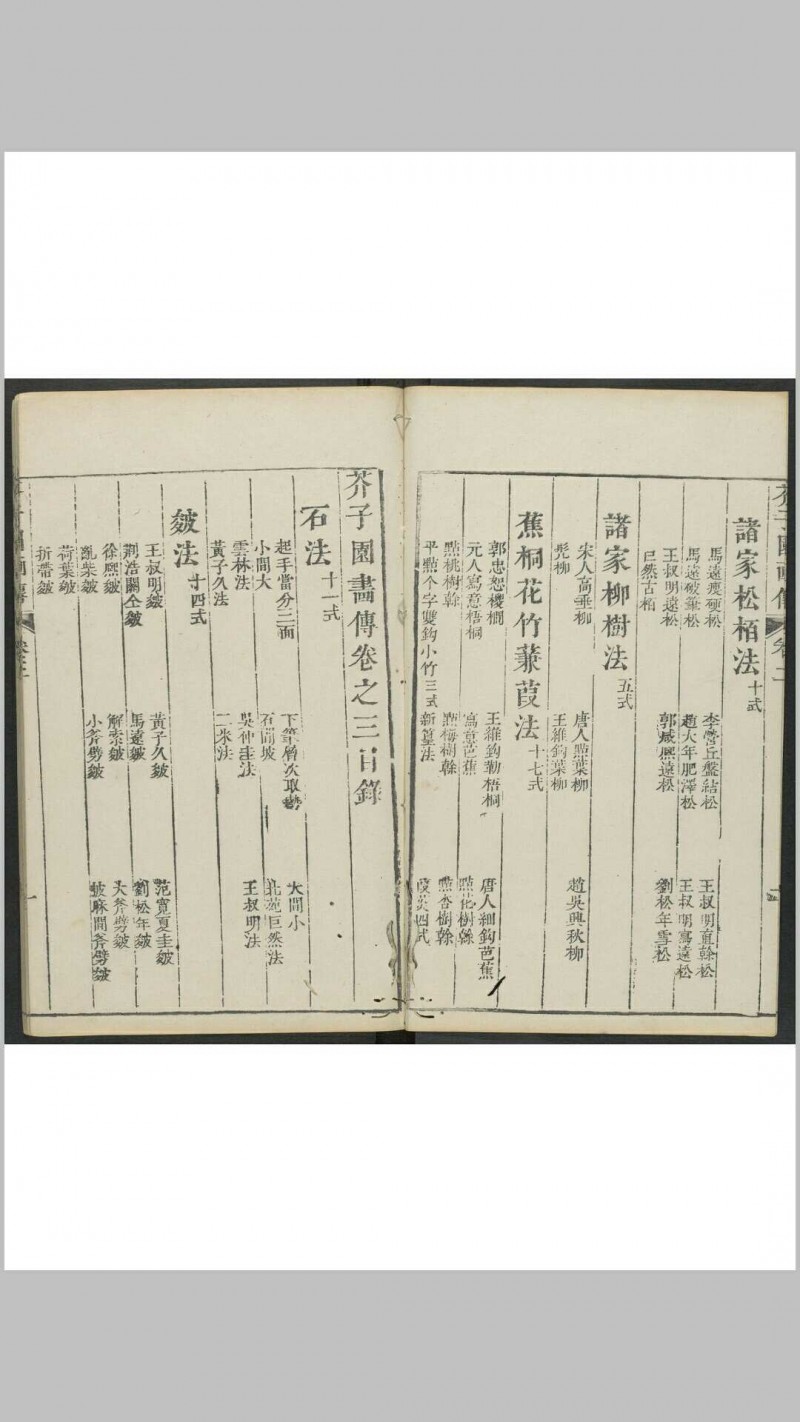 諸家松栢法 十式
馬遠瘦硬松 李營丘盤結松 王叔明直榦松
馬遠破筆松 趙大年肥澤松 王叔明寫遠松
王叔明遠松 郭咸熙遠松 劉松年雪松
巳然古栢
諸家柳樹法 五式
宋人高垂柳 唐人點葉柳 趙吳興秋柳
髡柳 王維鈎葉柳
蕉桐花竹蒹葭法 十七式
郭忠恕椶櫚 王維鈎勒梧桐 唐人細鈎芭蕉
元人寫意梧桐 寫意芭蕉 點花樹榦
點桃樹榦 點梅樹榦 點杏樹榦
平點个字雙鈎小竹三式 新篁法 葭菼四式
芥子園畵傳卷之三目錄
石法 十一式
起手當分三面 下筆層次取勢 大間小
小間大 石間坡 北苑巨然法
雲林法 吳仲圭法 王叔明法
黃子久法 二米法
皴法 十四式
王叔明皴 黃子久皴 范寬夏圭皴
荆浩關仝皴 馬遠皴 劉松年皴
徐熙皴 解索皴 大斧劈皴
亂柴皴 小斧劈皴 披麻間斧劈皴
荷葉皴
折帶皴